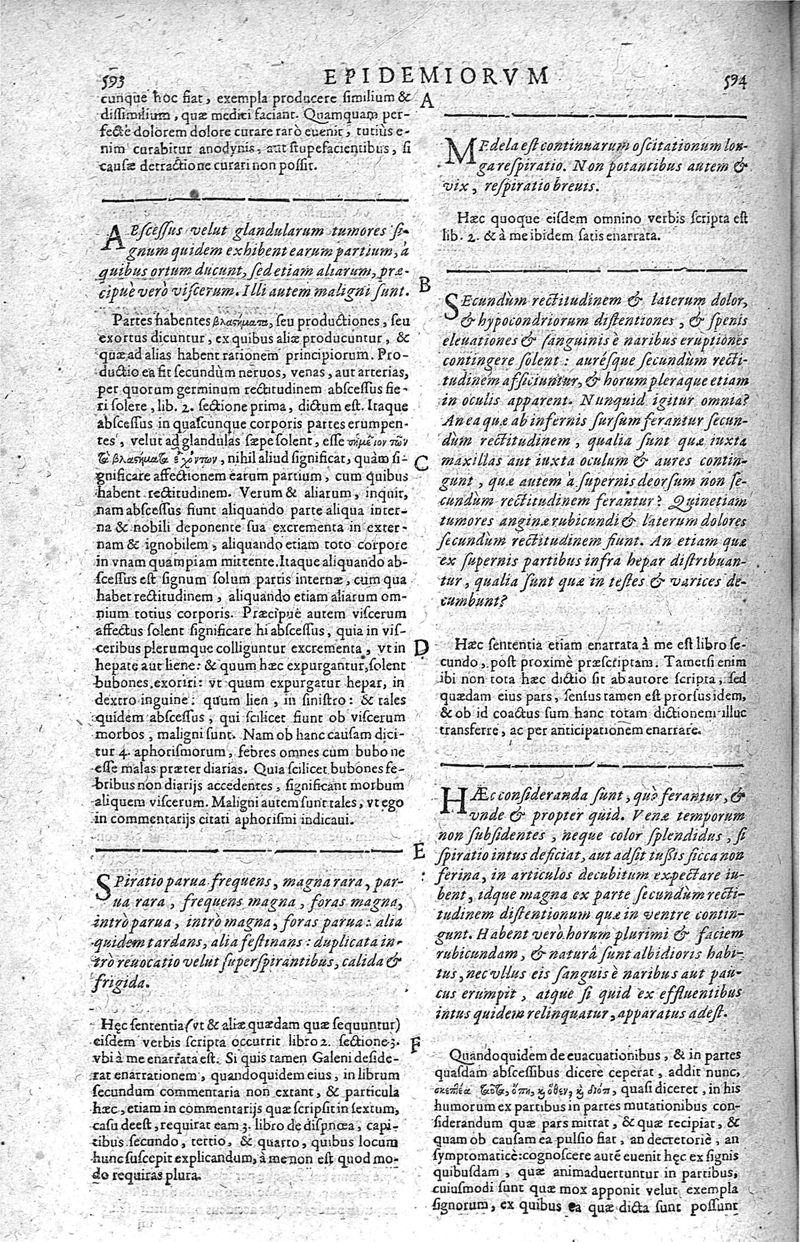 593
EPIDEMIORVM
594
cunque hoc fiat, exempla producere similium &
dissimilium, quæ medici faciant. Quamquam per-
fectè dolorem dolore curare rarò euenit, tutius e-
nim curabitur anodynis, aut stupefacientibus, si
causæ detractione curari non possit.
ABscessus velut glandularum tumores si-
gnum quidem exhibent earum partium, à
quibus ortum ducunt, sed etiam aliarum, præ-
cipuè verò viscerum. Illi autem maligni sunt.
Partes habentes βλαστήματα, seu productiones, seu
exortus dicuntur, ex quibus aliæ producuntur, &
quæ ad alias habent rationem principiorum. Pro-
ductio ea fit secundùm neruos, venas, aut arterias,
per quorum germinum rectitudinem abscessus fie-
ri solere, lib. 2. sectione prima, dictum est. Itaque
abscessus in quascunque corporis partes erumpen-
tes, velut ad glandulas sæpe solent, esse σημεῖον τῶν
τὰ βλαστήματα ἐχόντων, nihil aliud significat, quàm si-
gnificare affectionem earum partium, cum quibus
habent rectitudinem. Verùm & aliarum, inquit,
nam abscessus fiunt aliquando parte aliqua inter-
na & nobili deponente sua excrementa in exter-
nam & ignobilem, aliquando etiam toto corpore
in vnam quampiam mittente. Itaque aliquando ab-
scessus est signum solum partis internæ, cum qua
habet rectitudinem, aliquando etiam aliarum om-
nium totius corporis. Præcipuè autem viscerum
affectus solent significare hi abscessus, quia in vis-
ceribus plerumque colliguntur excrementa, vt in
hepate aut liene: & quum hæc expurgantur, solent
bubones exoriri: vt quum expurgatur hepar, in
dextro inguine: quum lien, in sinistro: & tales
quidem abscessus, qui scilicet fiunt ob viscerum
morbos, maligni sunt. Nam ob hanc causam dici-
tur 4. aphorismorum, febres omnes cum bubone
esse malas præter diarias. Quia scilicet bubones fe-
bribus non diarijs accedentes, significant morbum
aliquem viscerum. Maligni autem sunt tales, vt ego
in commentarijs citati aphorismi indicaui.
SPiratio parua frequens, magna rara, par-
ua rara, frequens magna, foras magna,
intrò parua, intrò magna, foras parua: alia
quidem tardans, alia festinans: duplicata in-
trò reuocatio velut superspirantibus, calida &
frigida.
Hęc sententia (vt & aliæ quædam quæ sequuntur)
eisdem verbis scripta occurrit libro 2. sectione 3.
vbi à me enarrata est. Si quis tamen Galeni deside-
rat enarrationem, quandoquidem eius, in librum
secundum commentaria non extant, & particula
hæc, etiam in commentarijs quæ scripsit in sextum,
casu deest, requirat eam 3. libro de dispnœa, capi-
tibus secundo, tertio, & quarto, quibus locum
hunc suscepit explicandum, à me non est quod mo-
do requiras plura.
A
B
C
D
E
F
MEdela est continuarum oscitationum lon-
ga respiratio. Non potantibus autem &
vix, respiratio breuis.
Hæc quoque eisdem omnino verbis scripta est
lib. 2. & à me ibidem satis enarrata.
SEcundùm rectitudinem & laterum dolor,
& hypocondriorum distentiones, & splenis
eleuationes & sanguinis è naribus eruptiones
contingere solent: aurésque secundùm recti-
tudinem afficiuntur, & horum pleraque etiam
in oculis apparent. Nunquid igitur omnia?
An ea quæ ab infernis sursum ferantur secun-
dùm rectitudinem, qualia sunt quæ iuxta
maxillas aut iuxta oculum & aures contin-
gunt, quæ autem à supernis deorsum non se-
cundùm rectitudinem ferantur? Quinetiam
tumores anginæ rubicundi & laterum dolores
secundùm rectitudinem fiunt. An etiam quæ
ex supernis partibus infra hepar distribuan-
tur, qualia sunt quæ in testes & varices de-
cumbunt?
Hæc sententia etiam enarrata à me est libro se-
cundo, post proximè præscriptam. Tametsi enim
ibi non tota hæc dictio sit ab autore scripta, sed
quædam eius pars, sensus tamen est prorsus idem,
& ob id coactus sum hanc totam dictionem illuc
transferre, ac per anticipationem enarrare.
HÆc consideranda sunt, quò ferantur, &
vnde & propter quid. Venæ temporum
non subsidentes, neque color splendidus, si
spiratio intus deficiat, aut adsit tussis sicca non
ferina, in articulos decubitum expectare iu-
bent, idque magna ex parte secundùm recti-
tudinem distentionum quæ in ventre contin-
gunt. Habent verò horum plurimi & faciem
rubicundam, & naturâ sunt albidioris habi-
tus, nec vllus eis sanguis è naribus aut pau-
cus erumpit, atque si quid ex effluentibus
intus quidem relinquatur, apparatus adest.
Quandoquidem de euacuationibus, & in partes
quasdam abscessibus dicere ceperat, addit nunc,
σκεπτέα ταῦτα, ὅπη, ϗ ὅθεν, ϗ διότι, quasi diceret, in his
humorum ex partibus in partes mutationibus con-
siderandum quæ pars mittat, & quæ recipiat, &
quam ob causam ea pulsio fiat, an decretoriè, an
symptomaticè: cognoscere autẽ euenit hęc ex signis
quibusdam, quæ animaduertuntur in partibus,
cuiusmodi sunt quæ mox apponit velut exempla
signorum, ex quibus ea quæ dicta sunt possunt